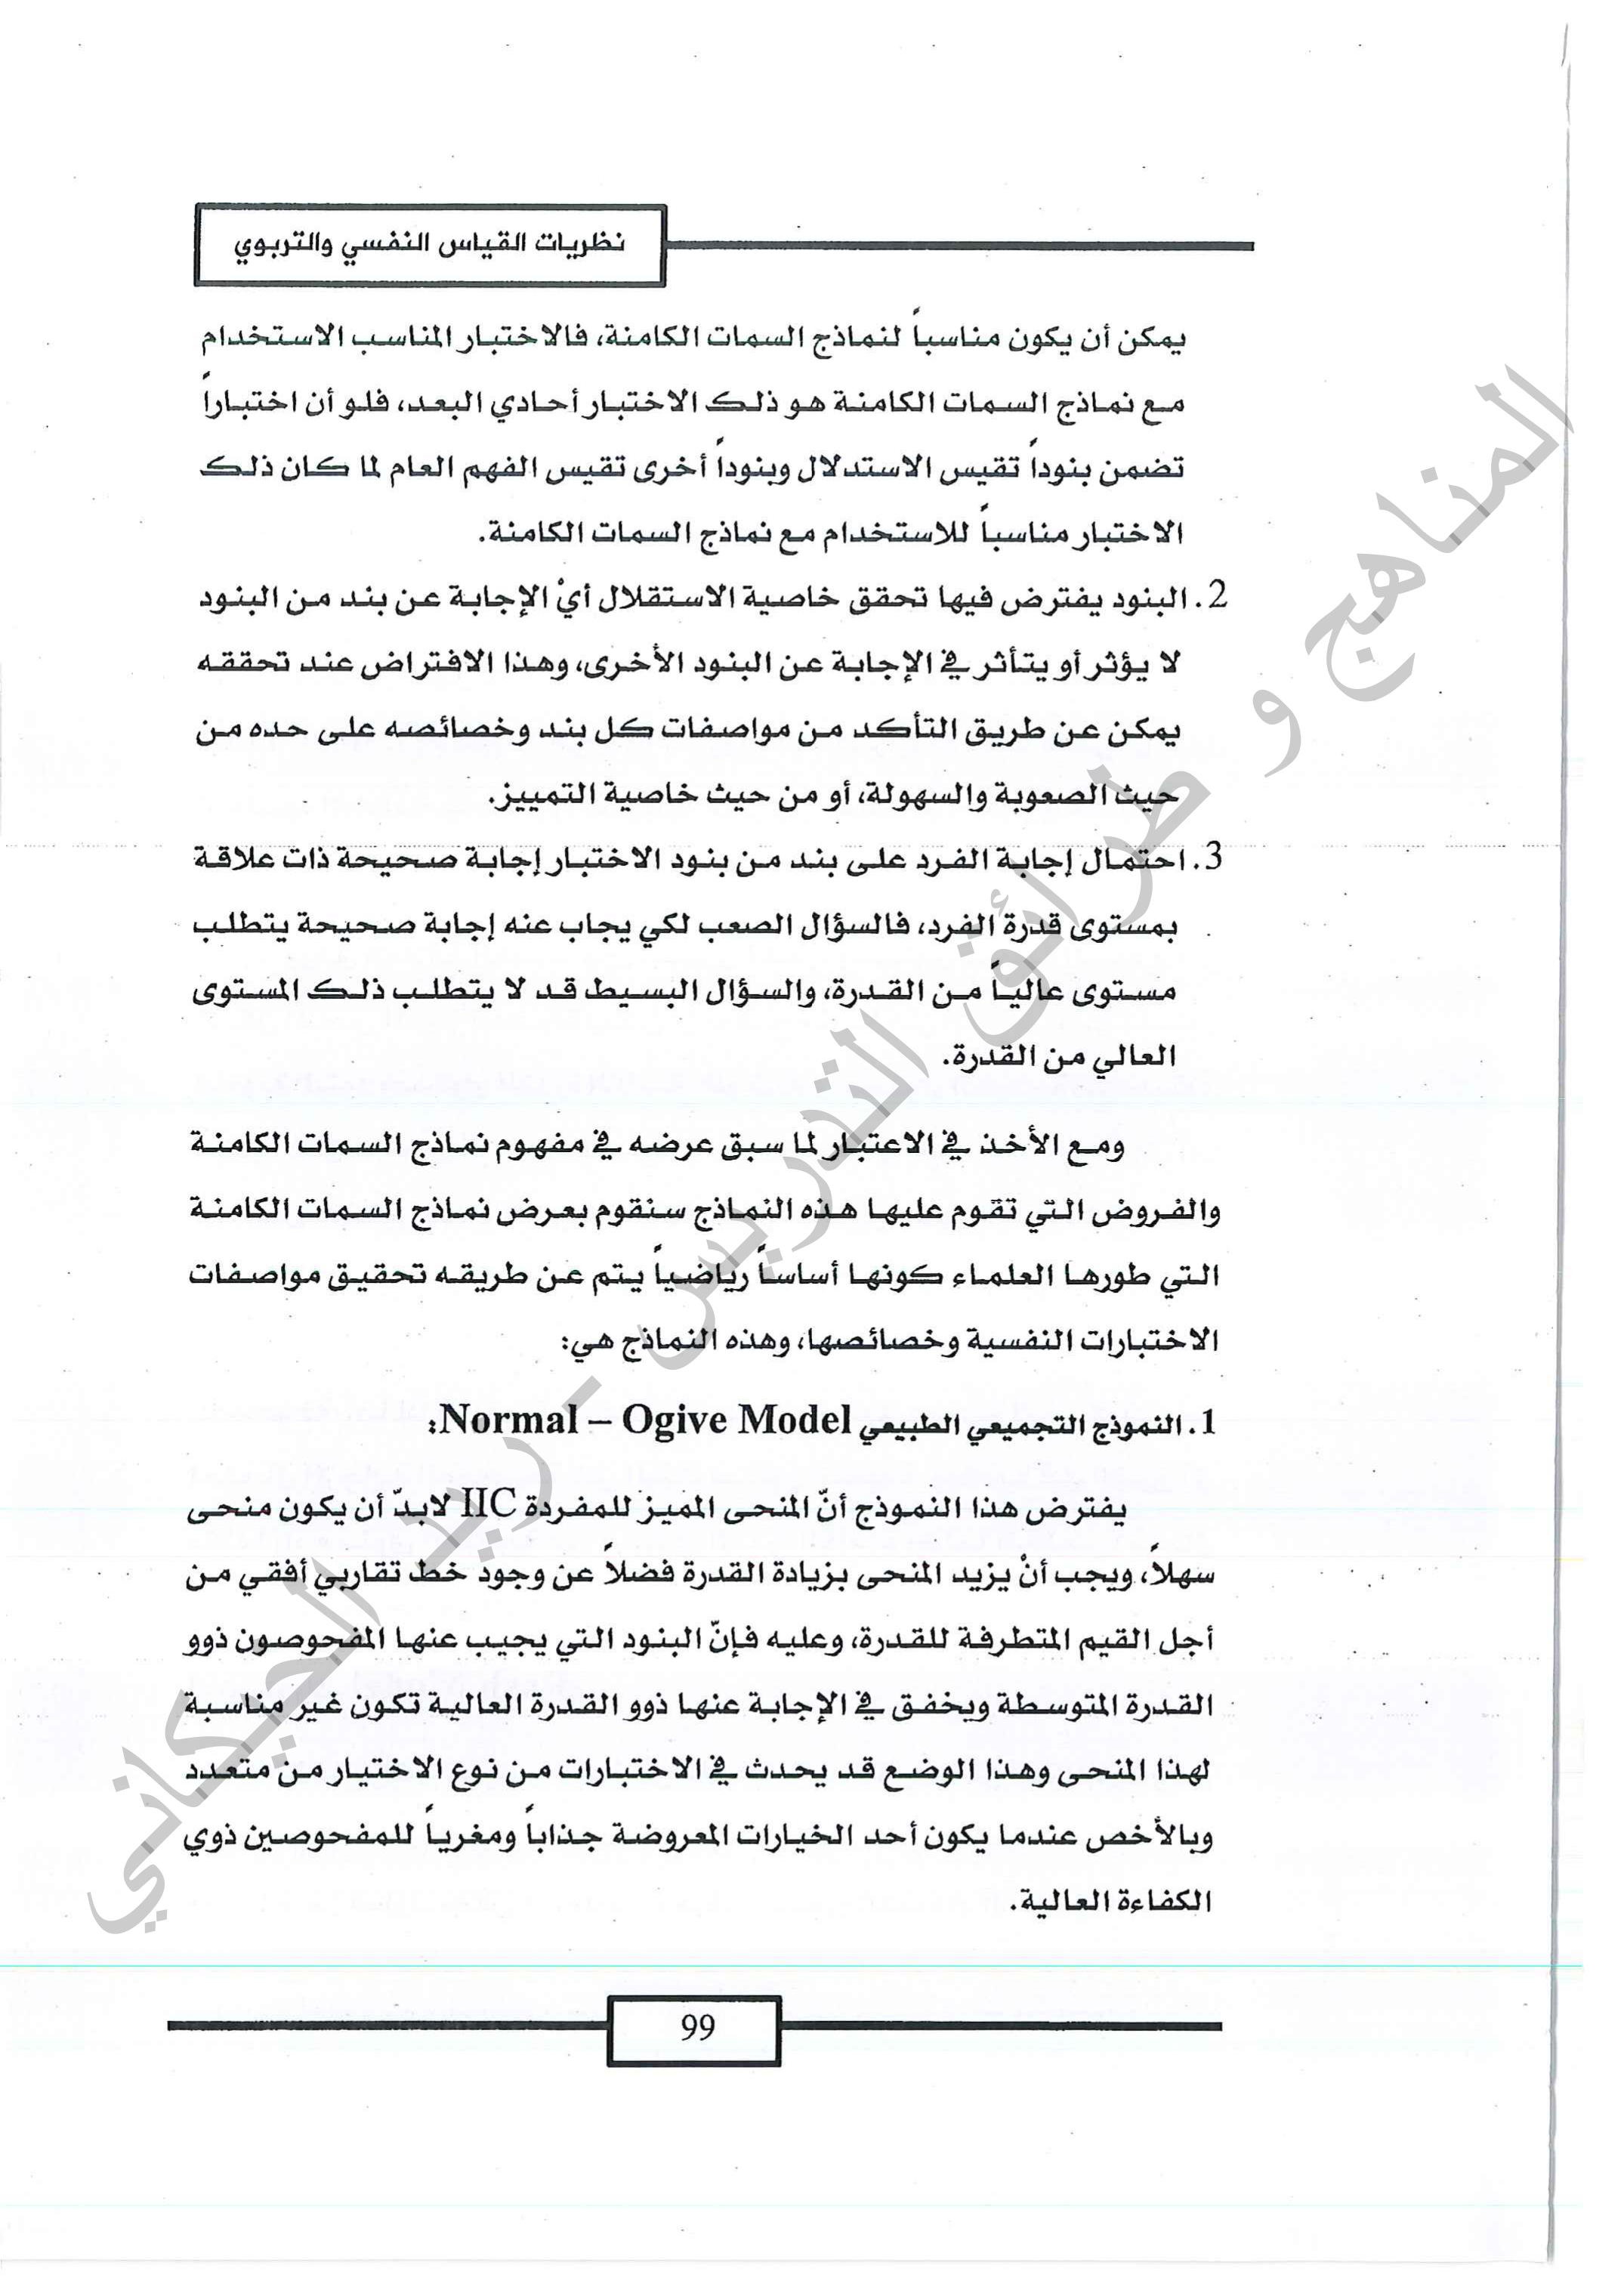 نظريات القياس النفسي والتربوي
يمكن أن يكون مناسباً لنماذج السمات الكامنة، فالاختبار المناسب الاستخدام
مع نماذج السمات الكامنة هو ذلك الاختبار أحادي البعد، فلو أن اختباراً
تضمن بنوداً تقيس الاستدلال وبنوداً أخرى تقيس الفهم العام لما كان ذلك
الاختبار مناسباً للاستخدام مع نماذج السمات الكامنة.
2. البنود يفترض فيها تحقق خاصية الاستقلال أيْ الإجابة عن بند من البنود
لا يؤثر أو يتأثر في الإجابة عن البنود الأخرى، وهذا الافتراض عند تحققه
يمكن عن طريق التأكد من مواصفات كل بند وخصائصه على حده من
حيث الصعوبة والسهولة، أو من حيث خاصية التمييز.
3. احتمال إجابة الفرد على بند من بنود الاختبار إجابة صحيحة ذات علاقة
بمستوى قدرة الفرد، فالسؤال الصعب لكي يجاب عنه إجابة صحيحة يتطلب
مستوى عالياً من القدرة، والسؤال البسيط قد لا يتطلب ذلك المستوى
العالي من القدرة.
ومع الأخذ في الاعتبار لما سبق عرضه في مفهوم نماذج السمات الكامنة
والفروض التي تقوم عليها هذه النماذج سنقوم بعرض نماذج السمات الكامنة
التي طورها العلماء كونها أساساً رياضياً يتم عن طريقه تحقيق مواصفات
الاختبارات النفسية وخصائصها، وهذه النماذج هي:
1. النموذج التجميعي الطبيعي Normal – Ogive Model:
يفترض هذا النموذج أنّ المنحى المميز للمفردة IIC لابدّ أن يكون منحى
سهلاً، ويجب أنْ يزيد المنحى بزيادة القدرة فضلاً عن وجود خط تقاربي أفقي من
أجل القيم المتطرفة للقدرة، وعليه فإنّ البنود التي يجيب عنها المفحوصون ذوو
القدرة المتوسطة ويخفق في الإجابة عنها ذوو القدرة العالية تكون غير مناسبة
لهذا المنحى وهذا الوضع قد يحدث في الاختبارات من نوع الاختيار من متعدد
وبالأخص عندما يكون أحد الخيارات المعروضة جذاباً ومغرياً للمفحوصين ذوي
الكفاءة العالية.
99
المناهج و طرائق التدريس - ريد الحيكاني